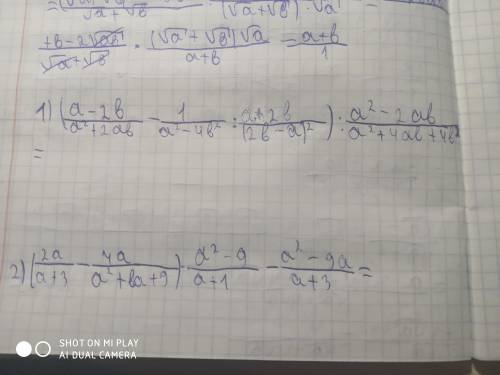 √a + √b (√a+√b)·√a
+b-2√ab/√a+√b · (√a + √b)√a/a+b = a+b/1
1) (a-2b/a²+2ab - 1/a²-4b² : a+2b/(2b-a)²) : a²-2ab/a²+4ab+4b²
=
2) (2a/a+3 - 4a/a²+6a+9) · a²-9/a+1 - a²-9a/a+3 =
SHOT ON MI PLAY
AI DUAL CAMERA